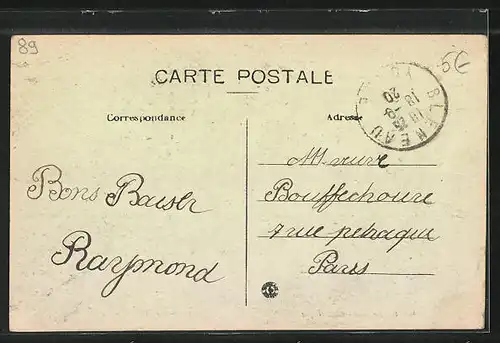 89
5€
CARTE POSTALE
Correspondance
Adresse
BLENEAU
YONNE
18
20
Bons Baiser
Raymond
Mr veuve
Bouffechoure
7 rue petraque
Paris